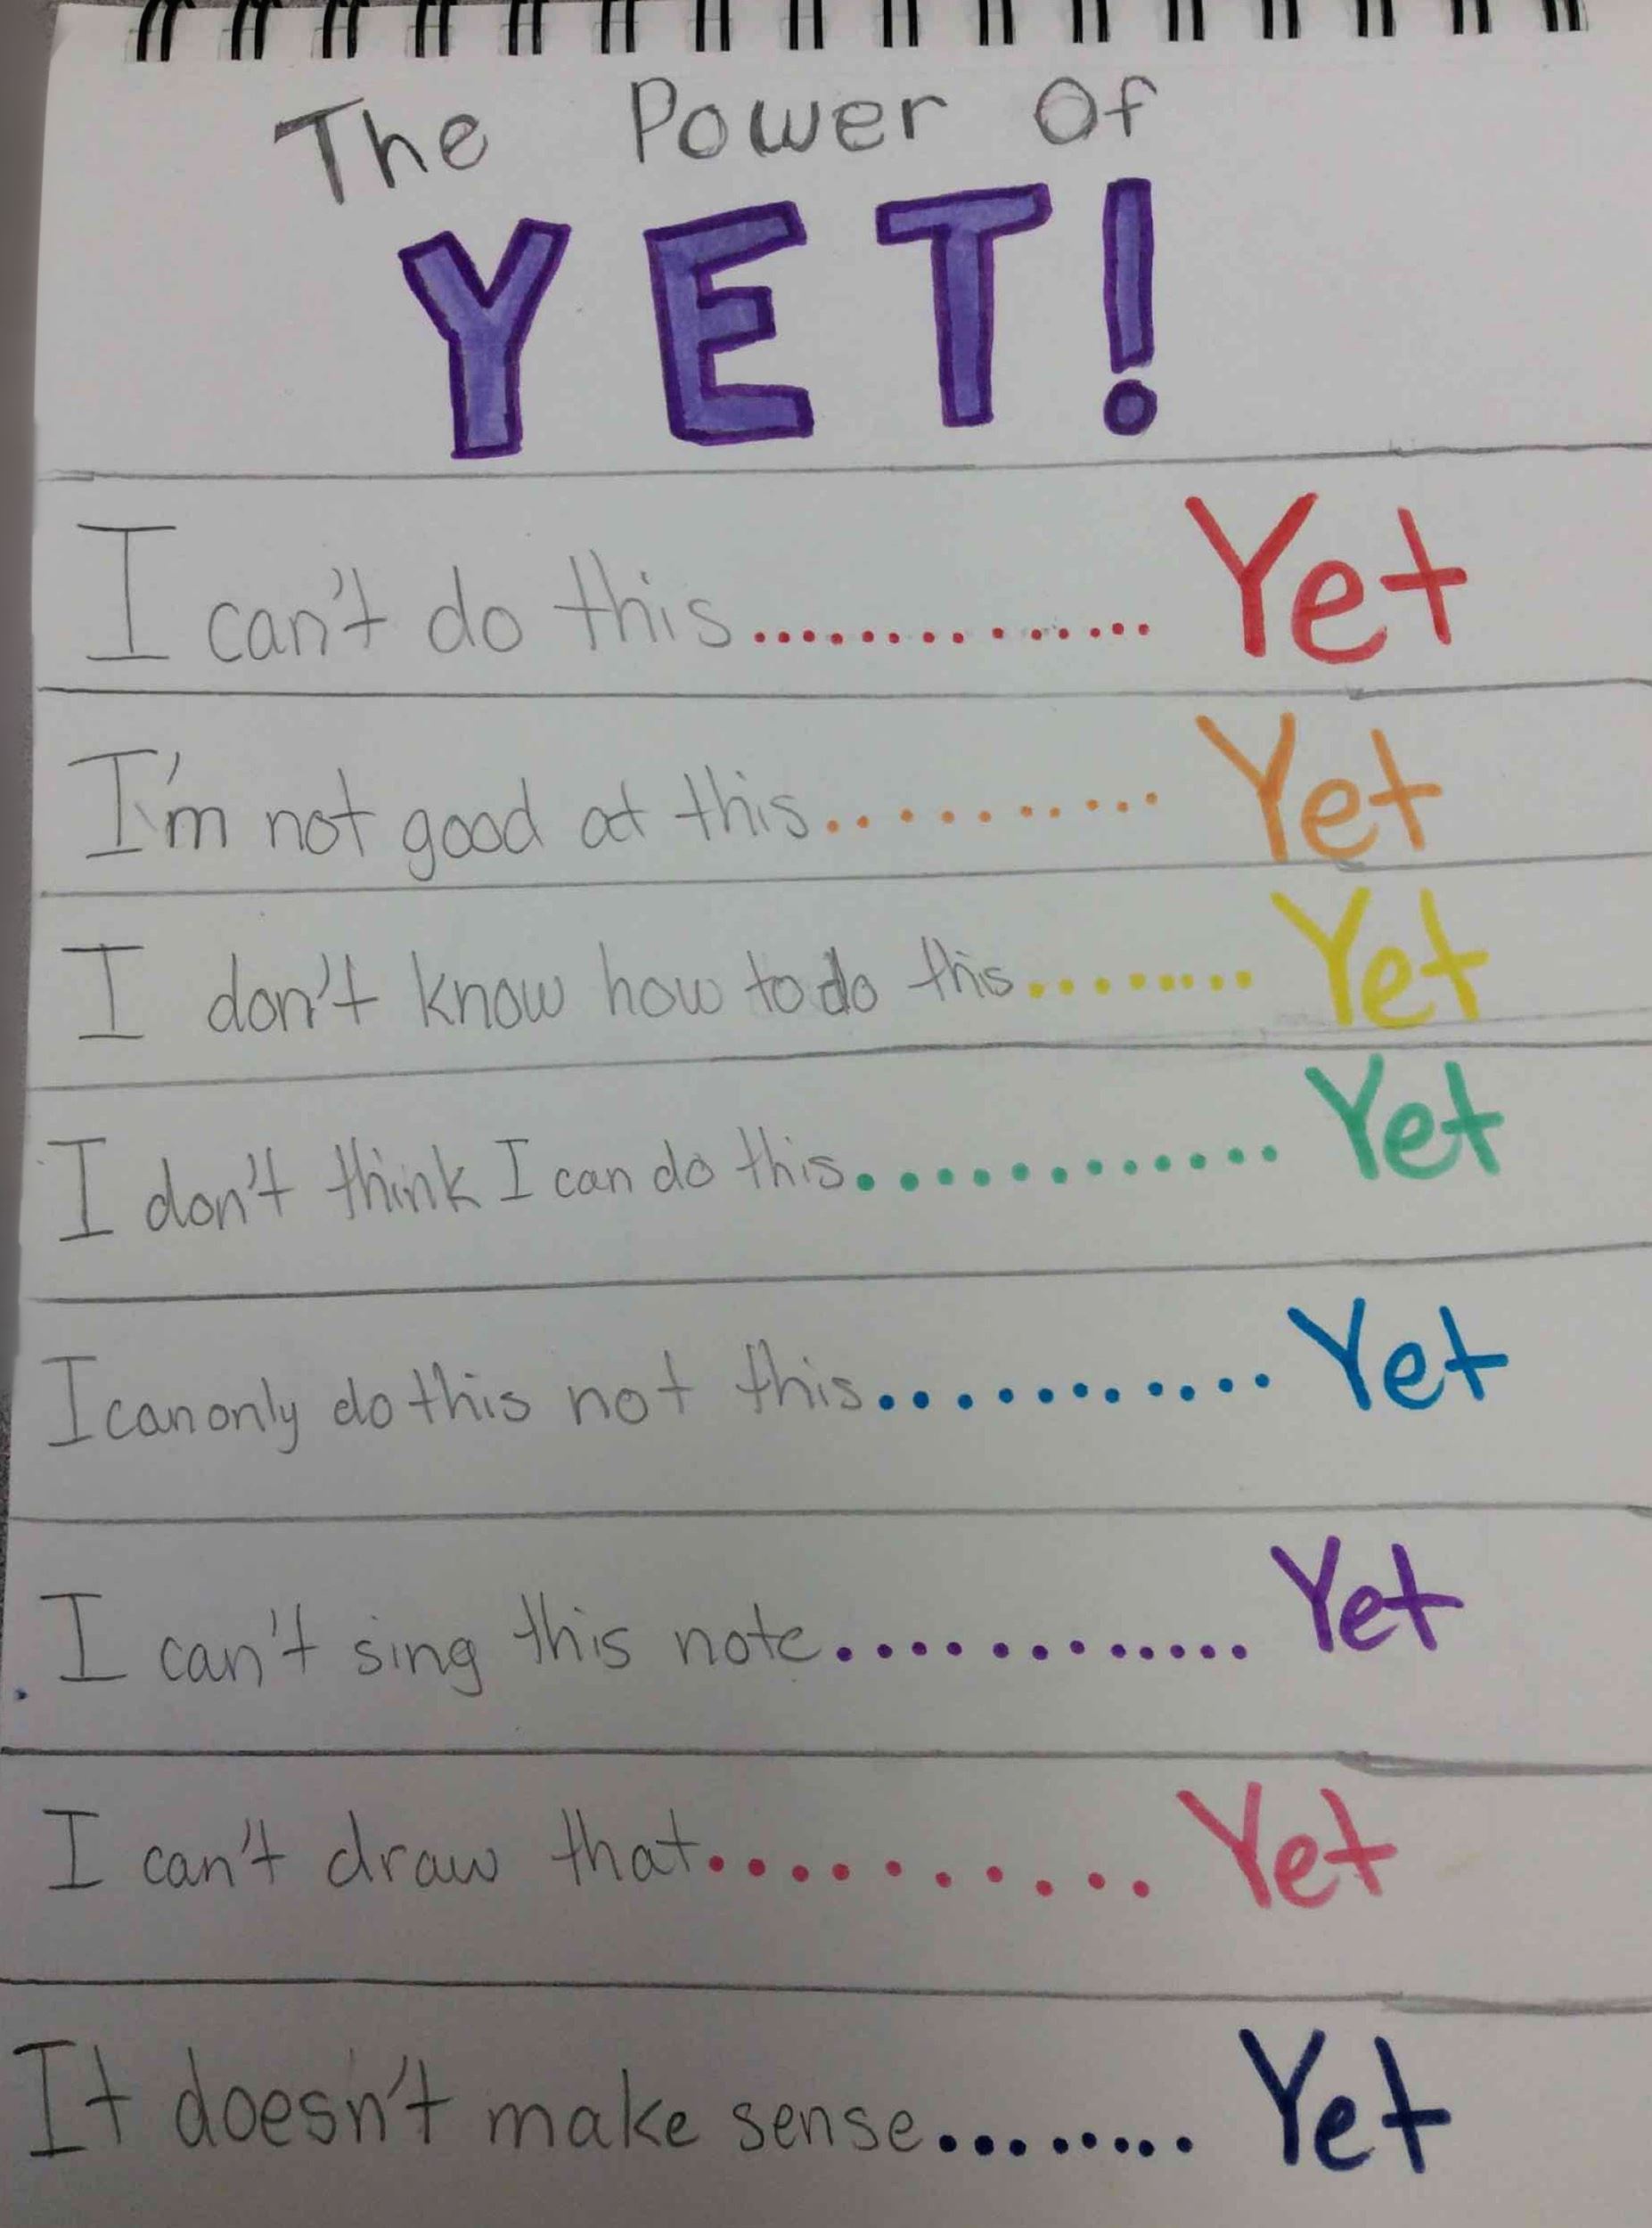 The Power Of
YET!
I can't do this............... Yet
I'm not good at this........... Yet
I don't know how to do this........ Yet
I don't think I can do this............ Yet
I can only do this not this............ Yet
I can't sing this note............. Yet
I can't draw that........... Yet
It doesn't make sense........ Yet